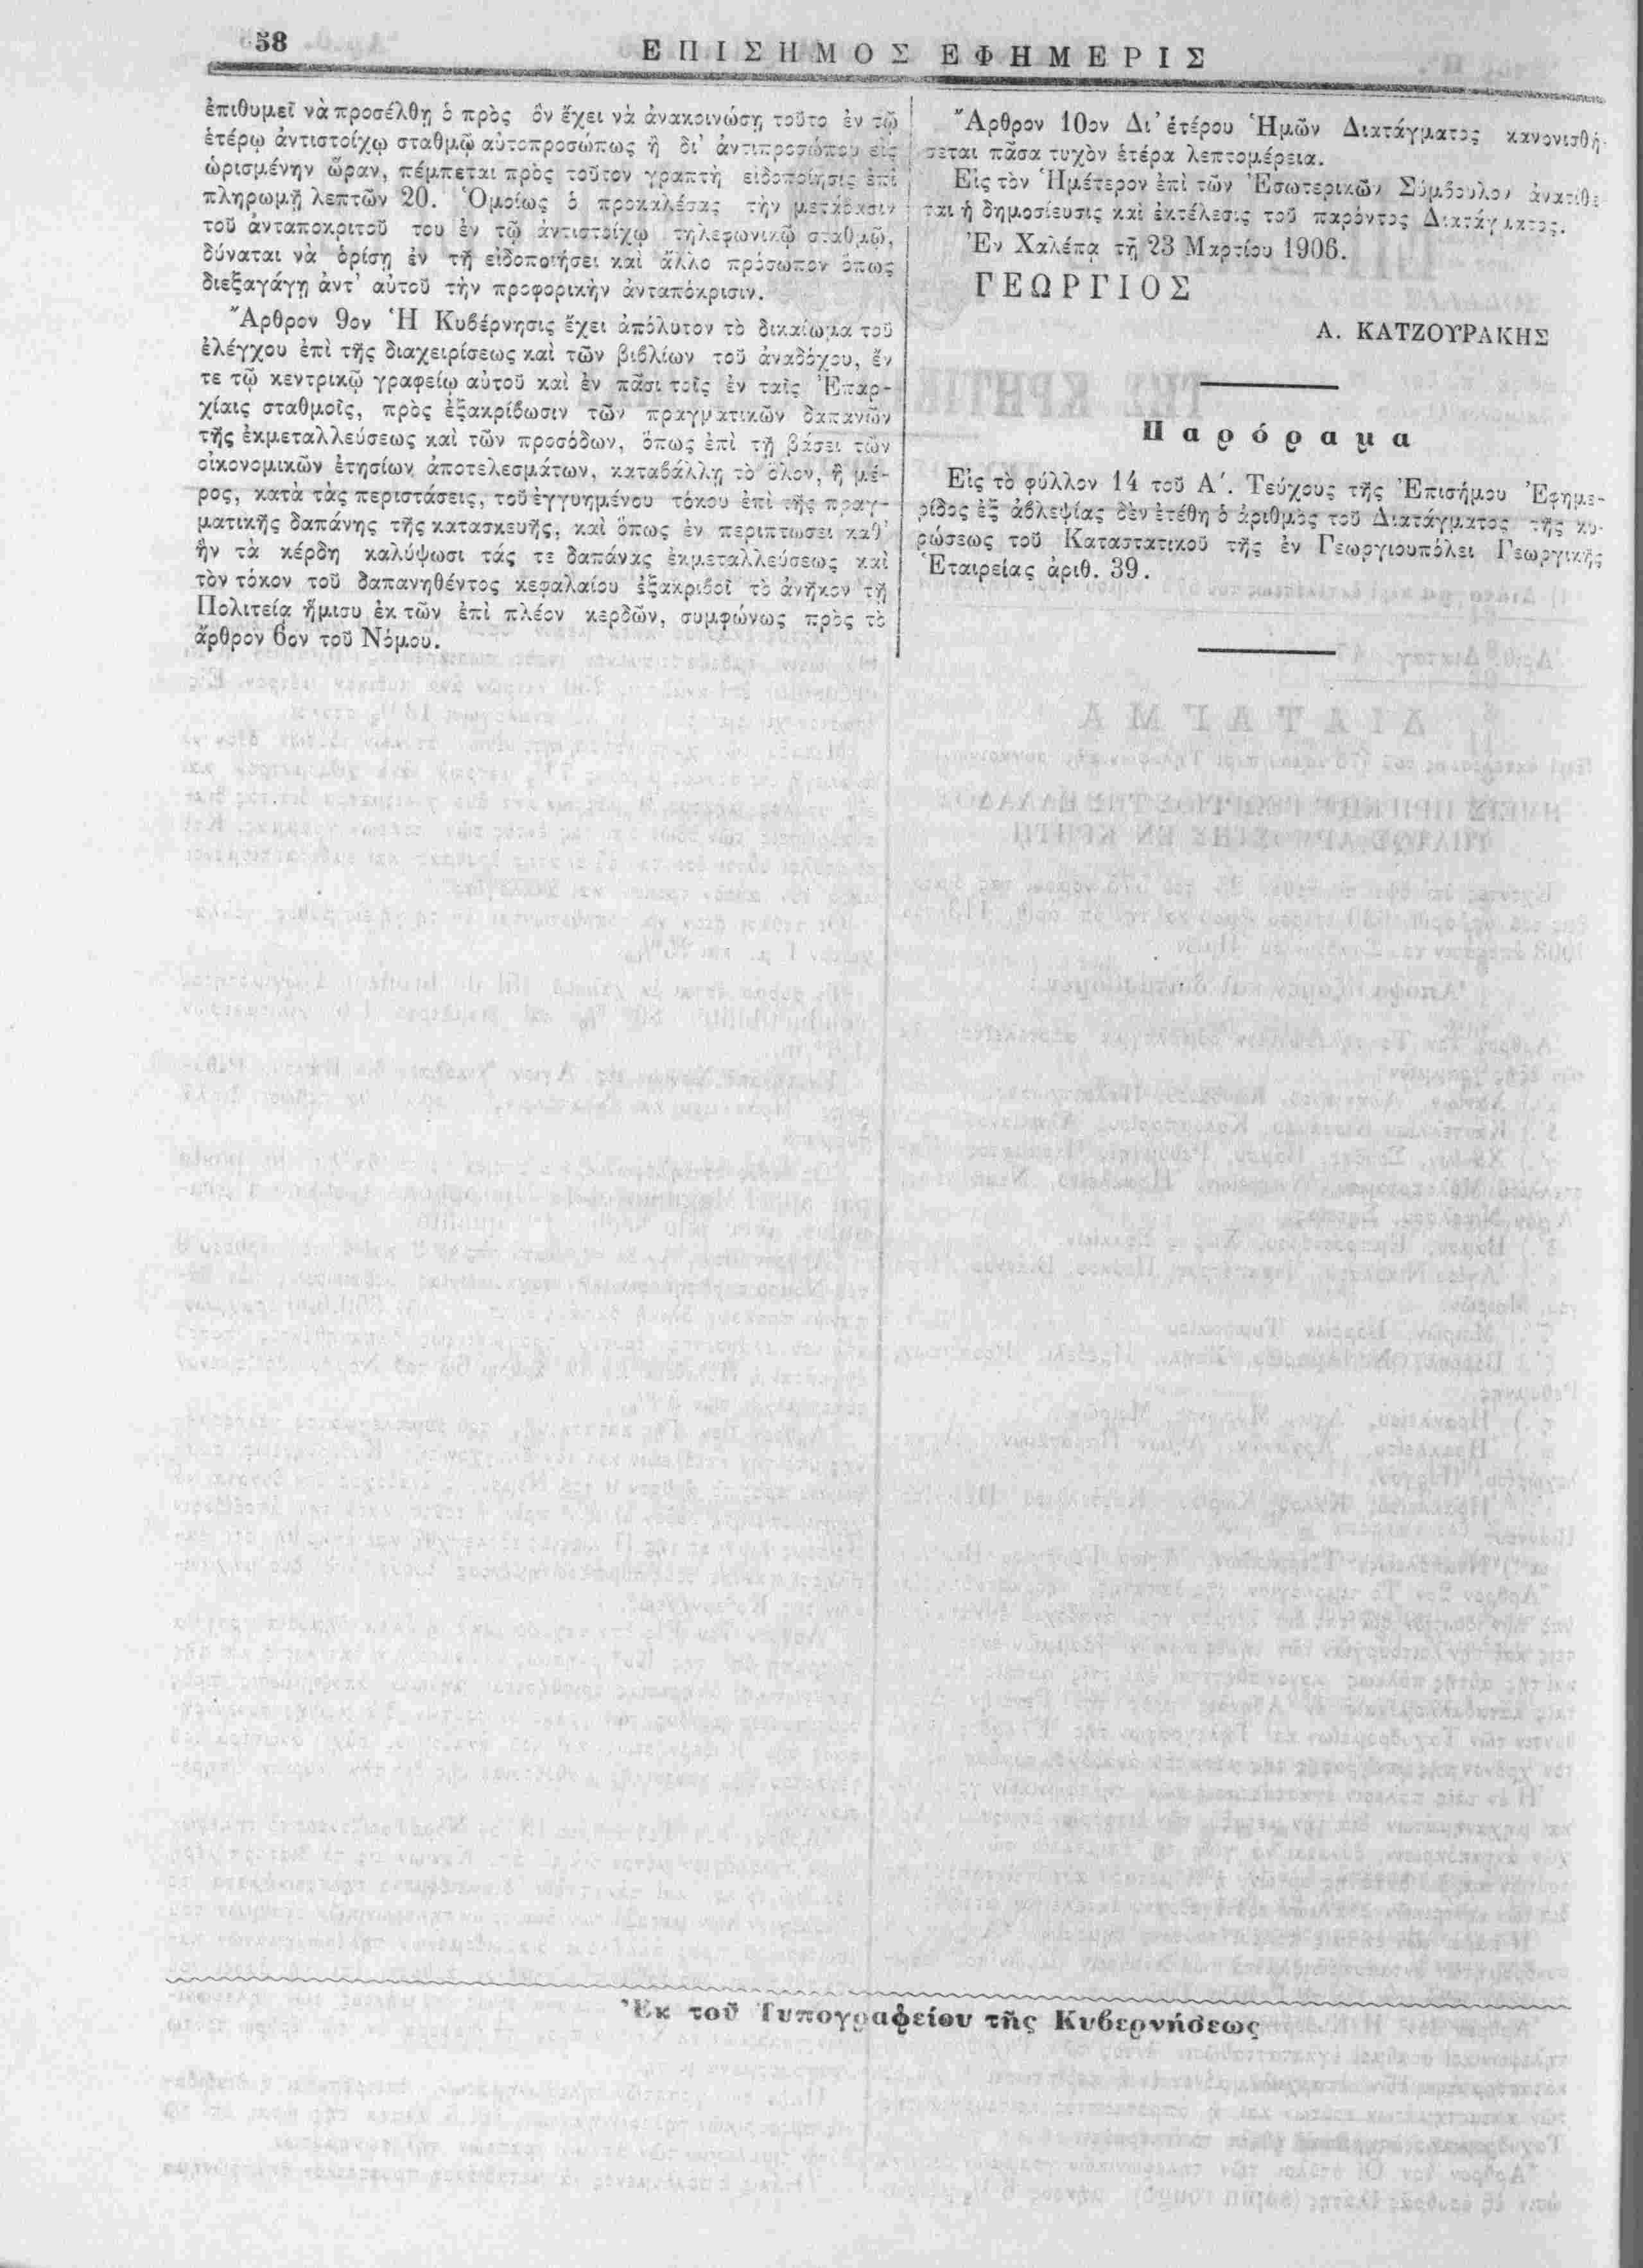 58
ΕΠΙΣΗΜΟΣ ΕΦΗΜΕΡΙΣ
ἐπιθυμεῖ νὰ προσέλθῃ ὁ πρὸς ὃν ἔχει νὰ ἀνακοινώσῃ τοῦτο ἐν τῷ
ἑτέρῳ ἀντιστοίχῳ σταθμῷ αὐτοπροσώπως ἢ δι' ἀντιπροσώπου εἰς
ὡρισμένην ὥραν, πέμπεται πρὸς τοῦτον γραπτὴ εἰδοποίησις ἐπὶ
πληρωμῇ λεπτῶν 20. Ὁμοίως ὁ προκαλέσας τὴν μετάβασιν
τοῦ ἀνταποκριτοῦ του ἐν τῷ ἀντιστοίχῳ τηλεφωνικῷ σταθμῷ,
δύναται νὰ ὁρίσῃ ἐν τῇ εἰδοποιήσει καὶ ἄλλο πρόσωπον ὅπως
διεξαγάγῃ ἀντ' αὐτοῦ τὴν προφορικὴν ἀνταπόκρισιν.
Ἄρθρον 9ον Ἡ Κυβέρνησις ἔχει ἀπόλυτον τὸ δικαίωμα τοῦ
ἐλέγχου ἐπὶ τῆς διαχειρίσεως καὶ τῶν βιβλίων τοῦ ἀναδόχου, ἔν
τε τῷ κεντρικῷ γραφείῳ αὐτοῦ καὶ ἐν πᾶσι τοῖς ἐν ταῖς Ἐπαρ-
χίαις σταθμοῖς, πρὸς ἐξακρίβωσιν τῶν πραγματικῶν δαπανῶν
τῆς ἐκμεταλλεύσεως καὶ τῶν προσόδων, ὅπως ἐπὶ τῇ βάσει τῶν
οἰκονομικῶν ἐτησίων ἀποτελεσμάτων, καταβάλλῃ τὸ ὅλον, ἢ μέ-
ρος, κατὰ τὰς περιστάσεις, τοῦ ἐγγυημένου τόκου ἐπὶ τῆς πραγ-
ματικῆς δαπάνης τῆς κατασκευῆς, καὶ ὅπως ἐν περιπτώσει καθ'
ἣν τὰ κέρδη καλύψωσι τάς τε δαπάνας ἐκμεταλλεύσεως καὶ
τὸν τόκον τοῦ δαπανηθέντος κεφαλαίου ἐξακριβοῖ τὸ ἀνῆκον τῇ
Πολιτείᾳ ἥμισυ ἐκ τῶν ἐπὶ πλέον κερδῶν, συμφώνως πρὸς τὸ
ἄρθρον 6ον τοῦ Νόμου.
Ἄρθρον 10ον Δι' ἑτέρου Ἡμῶν Διατάγματος κανονισθή-
σεται πᾶσα τυχὸν ἑτέρα λεπτομέρεια.
Εἰς τὸν Ἡμέτερον ἐπὶ τῶν Ἐσωτερικῶν Σύμβουλον ἀνατίθε
ται ἡ δημοσίευσις καὶ ἐκτέλεσις τοῦ παρόντος Διατάγματος.
Ἐν Χαλέπᾳ τῇ 23 Μαρτίου 1906.
ΓΕΩΡΓΙΟΣ
Α. ΚΑΤΖΟΥΡΑΚΗΣ
Παρόραμα
Εἰς τὸ φύλλον 14 τοῦ Α΄. Τεύχους τῆς Ἐπισήμου Ἐφημε-
ρίδος ἐξ ἀβλεψίας δὲν ἐτέθη ὁ ἀριθμὸς τοῦ Διατάγματος τῆς κυ-
ρώσεως τοῦ Καταστατικοῦ τῆς ἐν Γεωργιουπόλει Γεωργικῆς
Ἑταιρείας ἀριθ. 39.
Ἐκ τοῦ Τυπογραφείου τῆς Κυβερνήσεως